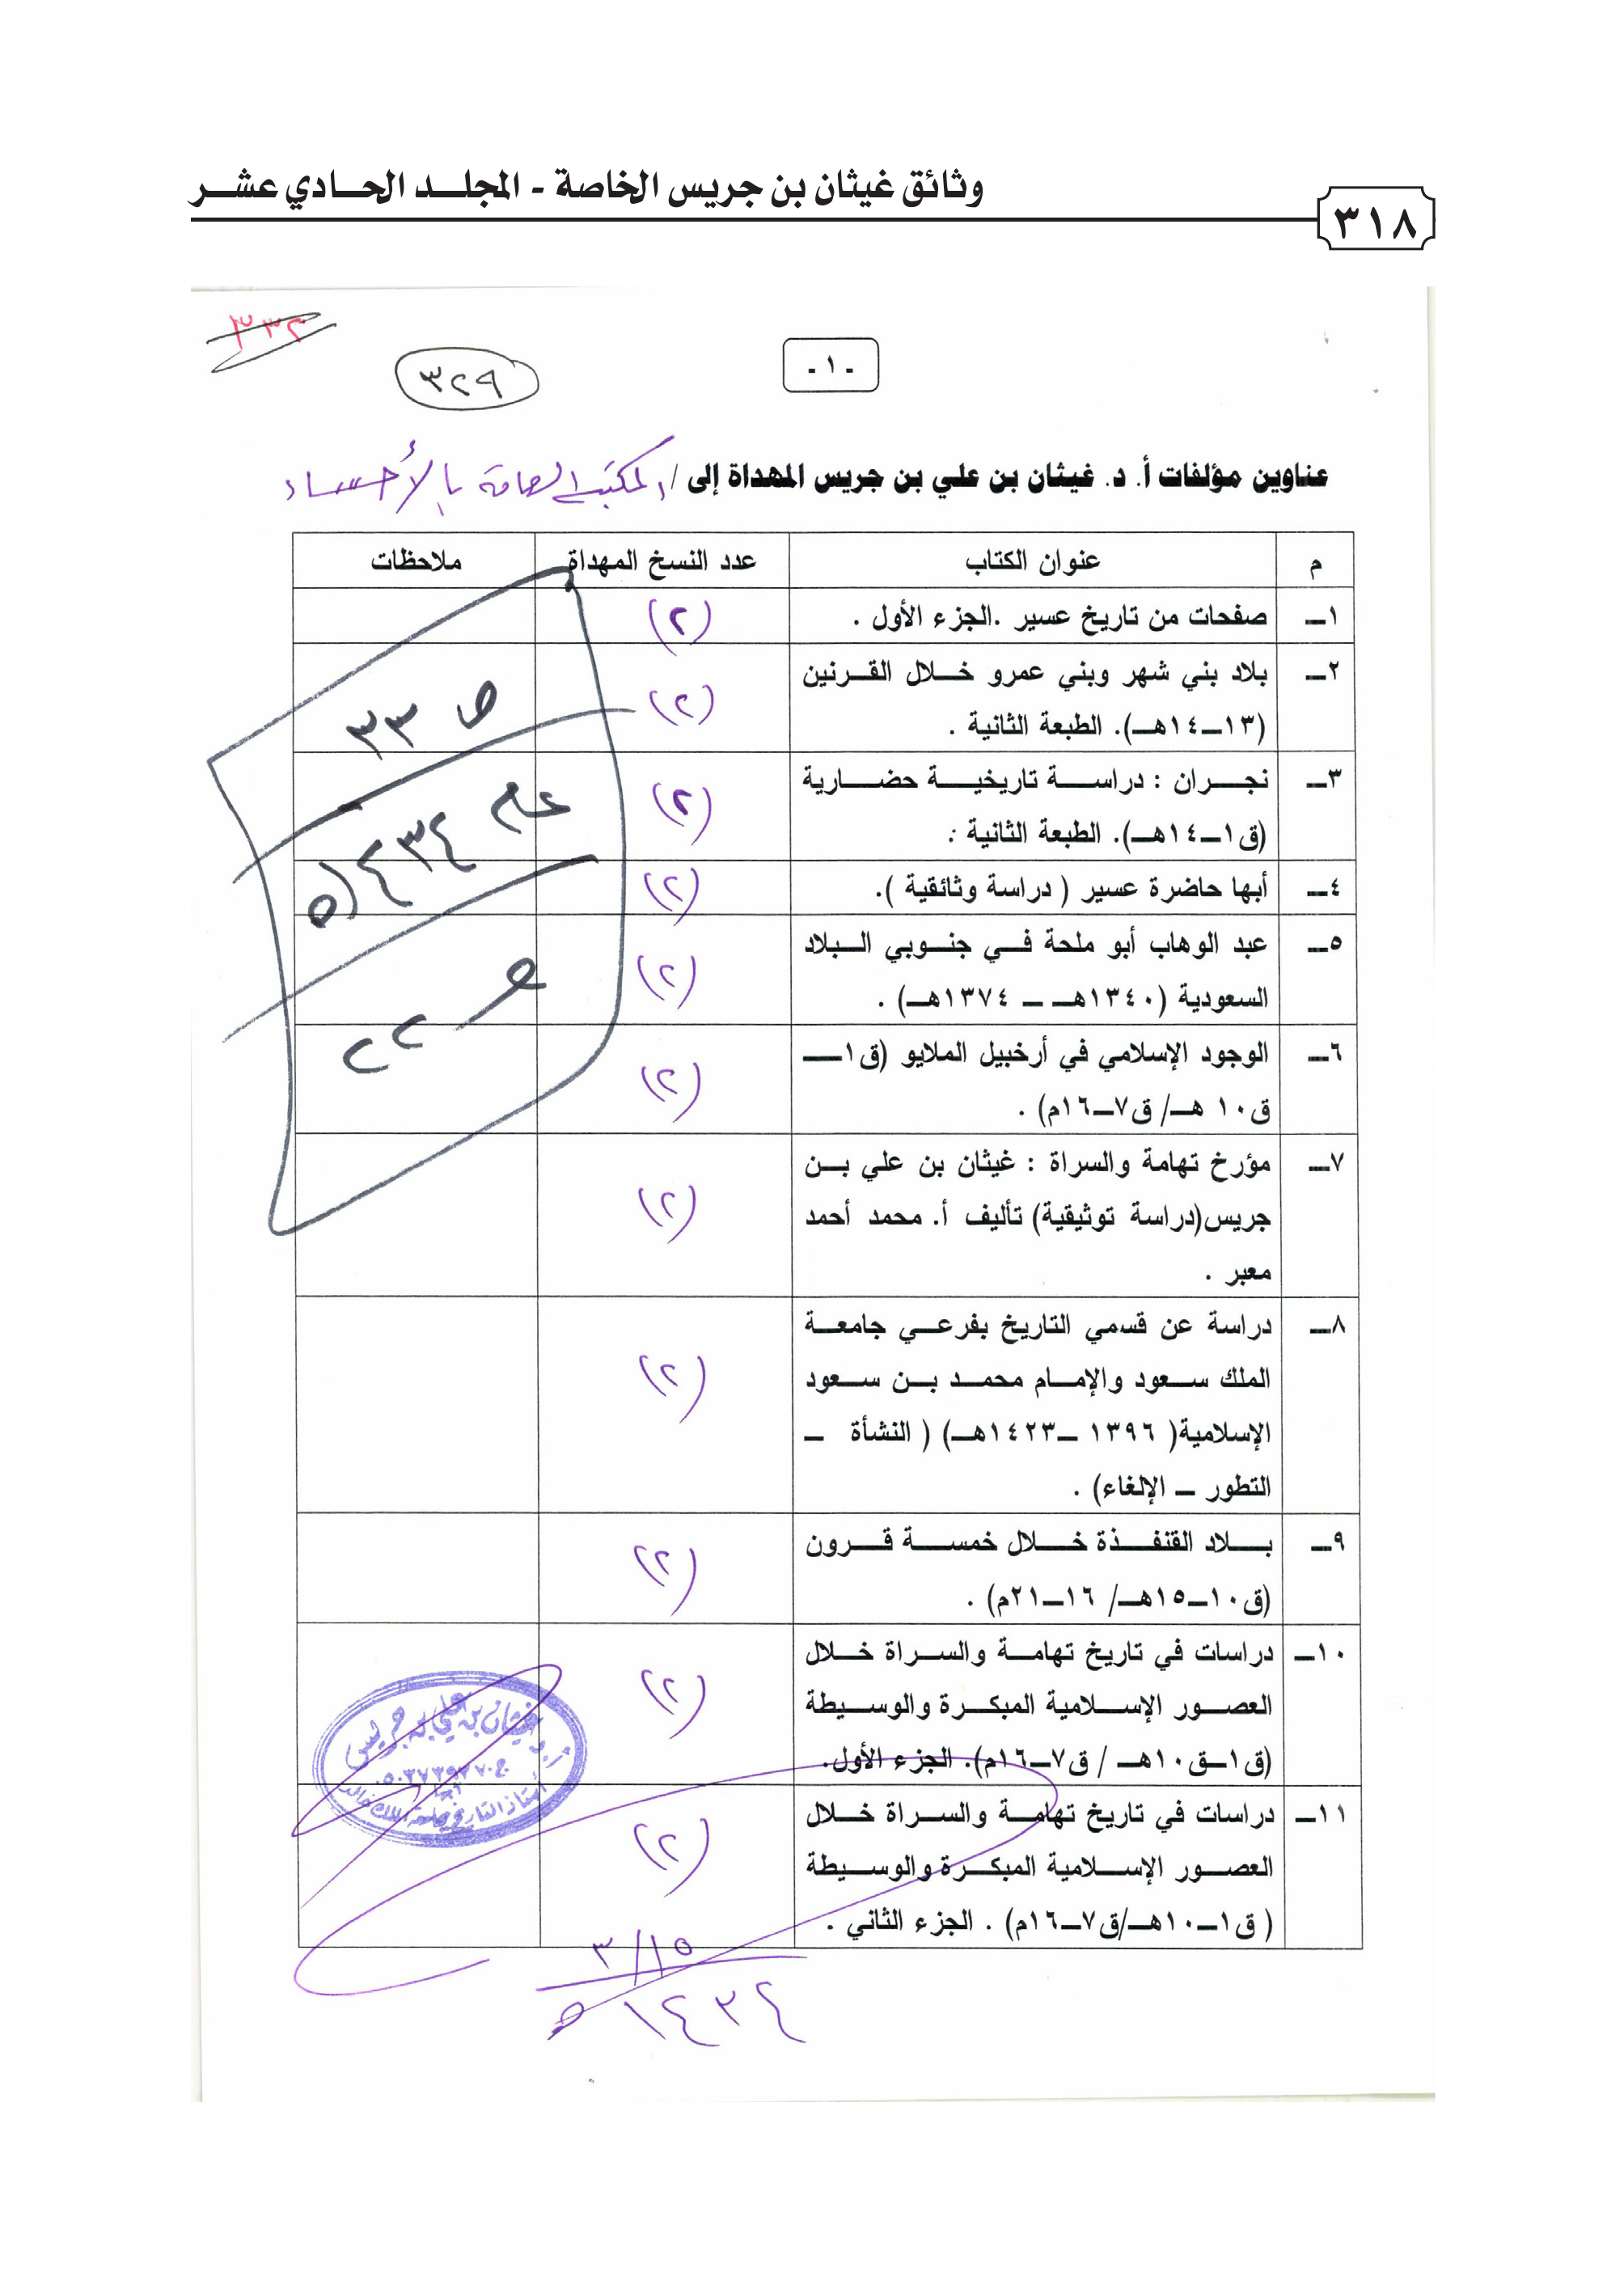 وثائق غيثان بن جريس الخاصة - المجلد الحادي عشر
٣١٨
٣٣٢
٣٢٩
- ١ -
عناوين مؤلفات أ. د. غيثان بن علي بن جريس المهداة إلى / المكتبة العامة بالأحساء
م عنوان الكتاب عدد النسخ المهداة ملاحظات
١ـ صفحات من تاريخ عسير .الجزء الأول . (٢)
٢ـ بلاد بني شهر وبني عمرو خلال القرنين (٢)
(١٣ــ١٤هـ). الطبعة الثانية .
٣ـ نجران : دراسة تاريخية حضارية (٢)
(ق١ــ١٤هـ). الطبعة الثانية .
٤ـ أبها حاضرة عسير ( دراسة وثائقية ). (٢)
٥ـ عبد الوهاب أبو ملحة في جنوبي البلاد (٢)
السعودية (١٣٤٠هـ ــ ١٣٧٤هـ) .
٦ـ الوجود الإسلامي في أرخبيل الملايو (ق١ــ (٢)
ق١٠ هـ/ ق٧ــ١٦م) .
٧ـ مؤرخ تهامة والسراة : غيثان بن علي بن (٢)
جريس(دراسة توثيقية) تأليف أ. محمد أحمد
معبر .
٨ـ دراسة عن قسمي التاريخ بفرعي جامعة (٢)
الملك سعود والإمام محمد بن سعود
الإسلامية( ١٣٩٦ ــ١٤٢٣هـ) ( النشأة ــ
التطور ــ الإلغاء) .
٩ـ بلاد القنفذة خلال خمسة قرون (٢)
(ق١٠ــ١٥هـ/ ١٦ــ٢١م) .
١٠ـ دراسات في تاريخ تهامة والسراة خلال (٢)
العصور الإسلامية المبكرة والوسيطة
(ق١ــق١٠هـ / ق٧ــ١٦م). الجزء الأول.
١١ـ دراسات في تاريخ تهامة والسراة خلال (٢)
العصور الإسلامية المبكرة والوسيطة
( ق١ــ١٠هـ/ق٧ــ١٦م) . الجزء الثاني .
ص ٣٣
عام ٤٣٤
٢٢
غيثان بن علي بن جريس
أستاذ التاريخ جامعة الملك خالد
١٥/٣
١٤٣٤هـ